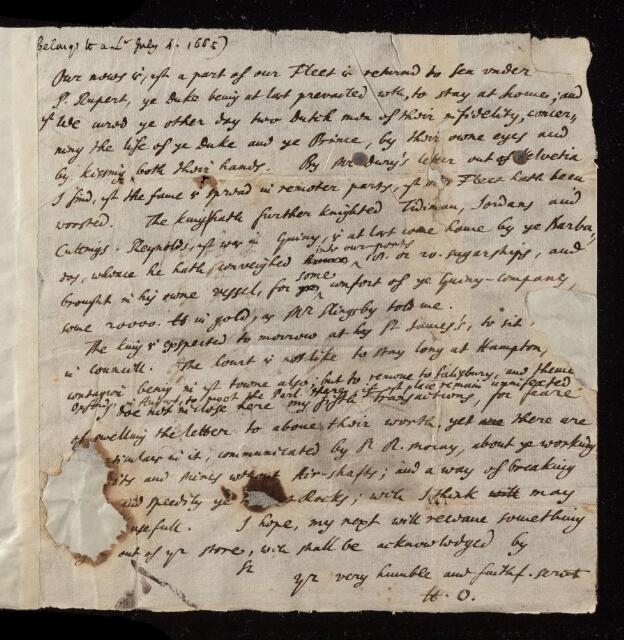 belongs to a Lr July 4. 1665)
Our news is, yt a part of our Fleet is returned to sea under
P. Rupert, ye Duke being at last prevailed with, to stay at home; and
yt We cured ye other day two Dutch men of their infidelity, concer-
ning the life of ye Duke and ye Prince, by their owne eyes and
by kissing both their hands. By Mr Dury's letter out of Helvetia
I find, yt the fame is spread in remoter parts, yt our Fleet hath been
worsted. The king hath further knighted Tidiman, Jordans and
Cuttings. Reynolds, yt was in Guiny, is at last come home by ye Barba-
dos, whence he hath conveighed into our ports 18. or 20. sugarships, and
brought in his owne vessel, for some comfort of ye Guiny-company,
some 20000. lb in gold, as Mr Slingsby told me.
The king is expected to morrow at his St James's, to sit
in councill. The Court is not like to stay long at Hampton,
contagion being in yt towne also; but to remove to Salisbury, and thence
to meet the Parl. there, if yt place remain uninfected
I doe not inclose here my fifth Transactions, for feare
of swelling the letter to above their worth, yet there are
in it, communicated by Sr R. Moray, about ye working
and mines without Air-shafts; and a way of breaking
and speedily ye Rocks; wch I think may
usefull. I hope, my next will receave something
out of yr store, wch shall be acknowledged by
Sr
yr very humble and faithf. servt
H. O.